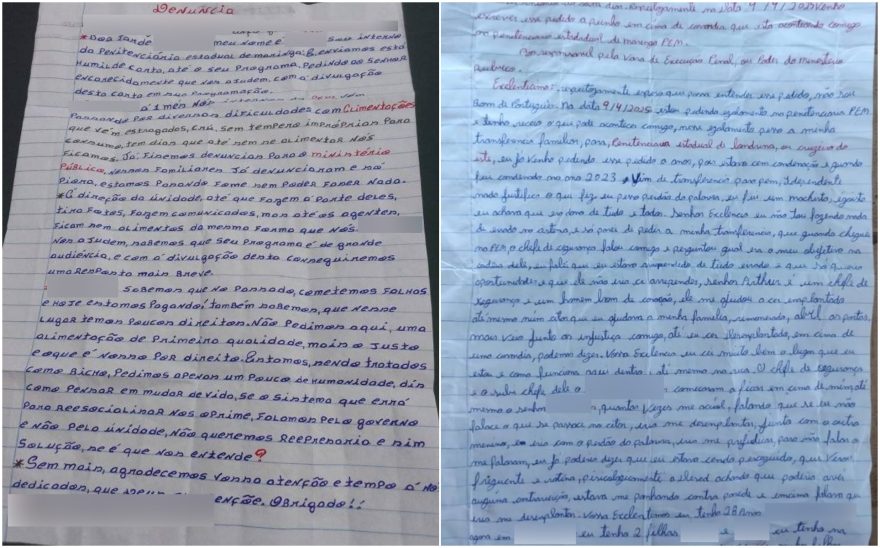 DENUNCIA
*Boa Tarde meu nome é Sou interno
da Penitenciária estadual de maringá: E, enviamos esta
Humilde Carta, até o seu Programa, Pedindo ao SENHOR
encarecidamente que nos ajudem, com a divulgação
desta carta em sua Programação.
Passando Por diversas dificuldades com alimentações
que vem estragadas, crú, sem tempero impróprias Para
consumo, tem dias que até nem se alimentar nós
Ficamos. Já Fizemos denuncias Para o ministério
Público, nossos Familiares Já denunciaram e só
Piora, estamos Passando Fome sem Poder Fazer Nada.
*A direção da unidade, até que Fazem a Parte deles,
tira Fotos, Fazem comunicados, mas até os agentes,
Ficam sem alimentos da mesma Forma que Nós.
Nos ajudem, sabemos que seu Programa é de grande
audiência, e com a divulgação desta conseguiremos
uma resposta mais Breve.
Sabemos que no Passado, cometemos FALHAS
e HOJE estamos Pagando! também sabemos, que nesse
lugar temos Poucos direitos. Não Pedimos aqui, uma
alimentação de Primeira qualidade, mais o Justo
e o que é nosso Por direito. Estamos, sendo tratados
como Bicho, Pedimos apenas um Pouco de Humanidade,
como Pensar em mudar de vida, se o sistema que era
Para reesocializar nos oprime, Falamos Pelo governo
e não Pela unidade, não queremos represaria e sim
Solução, se é que nos entende?
*Sem mais, agradecemos vossa atenção e tempo a nós
dedicados, que Deus enção. Obrigado!!
escrever esse pedido a punho em cima de covardia que esta acontecendo comigo
na penitenciaria estadual de maringa PEM.
responsavel pela Vara de Execução Penal, ou Poder do Ministério
Publico.
Excelentissimo, respeitosamente espero que possa entender esse pedido, não sou
Bom de Português. Na data 9/4/2025 estou pedindo na penitenciaria PEM.
e tenho receio o que pode acontecer comigo, peço a minha
transferencia familiar, para, Penitenciaria estadual de londrina, ou cruzeiro do
oeste, eu já venho pedindo esse pedido a anos, pois estava sem condenação e quando
fui condenado no ano 2023. Vim de transferencia para pem, Independente
nada justifica o que fiz eu peço perdão da palavra, eu fui um machista, egoista
eu achava que era dono de tudo e todos. Senhor Excelencia eu não tou fazendo nada
de errado no sistema, e só parei de pedir a minha transferencia, que quando cheguei
na PEM o chefe de segurança falou comigo e perguntou qual era o meu objetivo na
cadeia dele, eu falei que eu estava arrependido de tudo errado e que só queria
oportunidades e que ele não iria se arrepender, senhor Arthur é um chefe de
segurança e um homem bom de coração, ele me ajudou a ser implantado
até mesmo num setor que eu ajudava a minha familia, abril as portas,
mais veio junto as injustiça comigo, até eu ser desimplantado, em cima de
uma covardia, podemos dizer. Vossa Excelencia eu sei muito bem o lugar que eu
estou e como funciona aqui dentro até mesmo na rua. O chefe de segurança
e o sub chefe dele o começaram a ficar em cima de mim, até
mesmo o senhor quantas vezes me falando que se eu não
falace o que se passace no setor, iria me desimplantar, junto com o outro
com o perdão da palavra, iria me prejudicar, para não falar o
me falaram, eu já poderia dizer que eu estava sendo perseguido,
frequente e rotina, psicologicamente achando que poderia aver
alguma contradição, estava me panhando contra parede e falava que
iria me desimplantar. Vossa Excelentissimo eu tenho 28 Anos
agora em eu tenho 2 filhas e eu tenho na